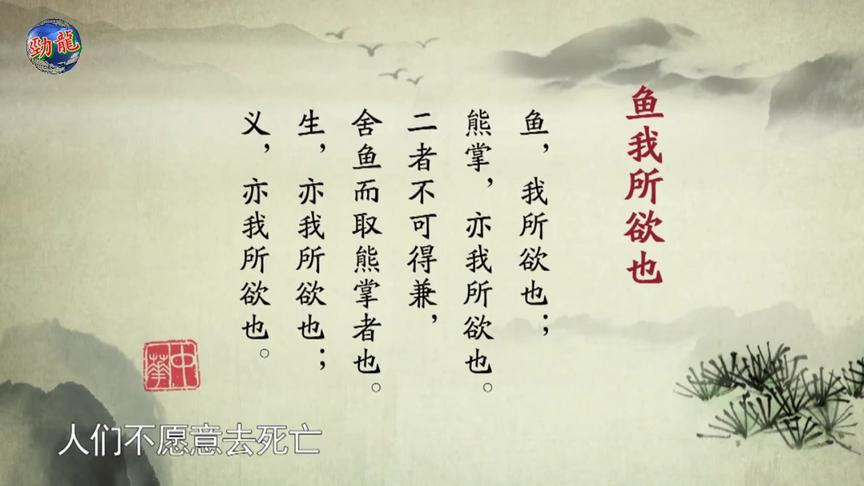 勁龍
鱼我所欲也
鱼，我所欲也；
熊掌，亦我所欲也。
二者不可得兼，
舍鱼而取熊掌者也。
生，亦我所欲也；
义，亦我所欲也。
中華
人们不愿意去死亡